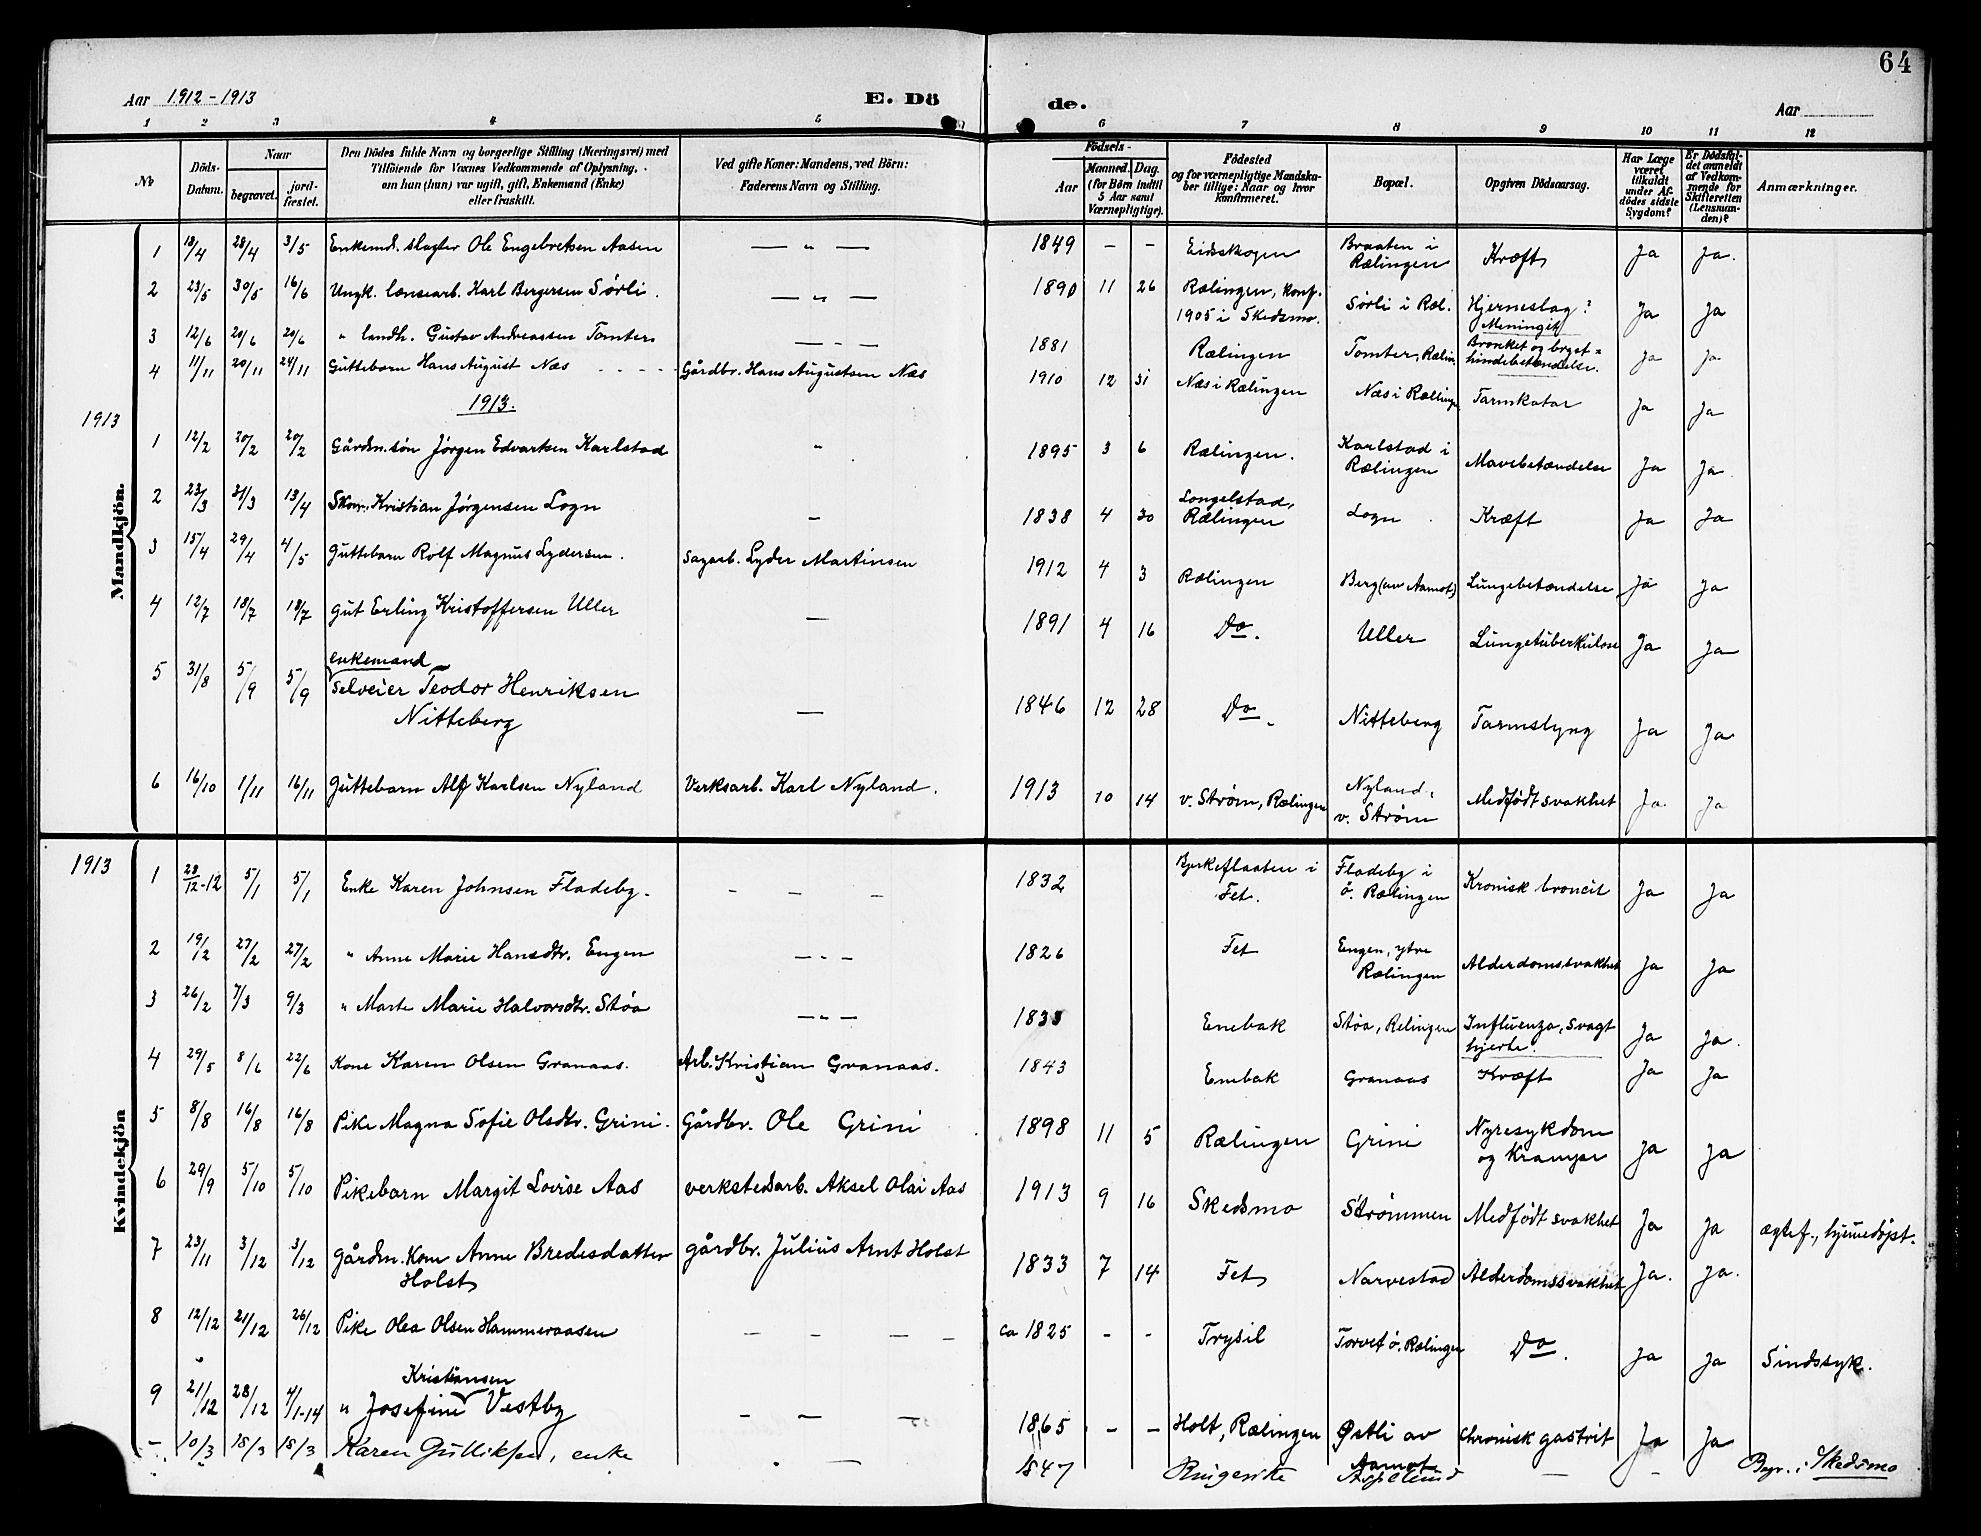 64
Aar 1912-1913 E. Dö de. Aar
1 2 3 4 5 6 7 8 9 10 11 12
No
Döds-Datum.
Naar
begravet.
jord-fæstet.
Den Dödes fulde Navn og borgerlige Stilling (Næringsvei) med
Tilföiende for Voxnes Vedkommende af Oplysning,
om hun (hun) var ugift, gift, Enkemand (Enke)
eller fraskilt.
Ved gifte Koner: Mandens, ved Börn:
Faderens Navn og Stilling.
Födsels-
Aar
Maaned. Dag.
(for Börn indtil
5 Aar samt
Værnepligtige).
Födested
og for værnepligtige Mandska-
ber tillige: Naar og hvor
konfirmeret.
Bopæl.
Opgiven Dödsaarsag.
Har Læge
været
tilkaldt
under Af-
dödes sidste
Sygdom?
Er Dödsfal-
det anmeldt
af Vedkom-
mende for
Skifteretten
(Lensman-
den)?
Anmærkninger.
Mandkjön.
1 18/4 28/4 3/5 Enkemd. slagter Ole Engebretsen Aasen — " — 1849 - - Eidskogen Braaten i Rælingen Kræft Ja Ja.
2 23/5 30/5 16/6 Ungk. lænsearb. Karl Bergersen Sørli. — " — 1890 11 26 Rælingen, konf. 1905 i Skedsmo. Sørli i Ræl. Hjerneslag? Meningit Ja Ja
3 12/6 20/6 20/6 " landh. Gustav Andreassen Tomter — - — 1881 Rælingen Tomter, Rælin. Bronket og bryst= hindebetændelse. Ja Ja
4 11/11 20/11 24/11 Guttebarn Hans August Næs Gårdbr. Hans Augustsen Næs 1910 12 31 Næs i Rælingen Næs i Rælinge Tarmkatar Ja Ja
1913 1913.
1 12/2 20/2 20/2 Gårdm.søn Jørgen Edvartsen Karlstad " 1895 3 6 Rælingen. Karlstad i Rælingen Mavebetændelse Ja Ja.
2 23/3 31/3 13/4 Skom. Kristian Jørgensen Logn — 1838 4 30 Longelstad, Rælingen Logn Kræft Ja Ja
3 15/4 29/4 4/5 Guttebarn Rolf Magnus Lydersen. Sagarb. Lyder Martinsen 1912 4 3 Rælingen Berg (av Aamot) Lungebetændelse Ja Ja
4 12/7 18/7 18/7 Gut Erling Kristoffersen Uller — 1891 4 16 Do. Uller Lungetuberkulose Ja Ja
5 31/8 5/9 5/9 enkemand Selveier Teodor Henriksen Nitteberg — 1846 12 28 Do. Nitteberg Tarmslyng Ja Ja
6 16/10 1/11 16/11 Guttebarn Alf Karlsen Nyland Verksarb. Karl Nyland. 1913 10 14 v. Strøm, Rælingen Nyland, v. Strøm Medfødt svakhet Ja. Ja
1913
Kvindekjön
1 28/12-12 5/1 5/1 Enke Karen Johnsen Fladeby. - - - 1832 Byrkeflaaten i Fet. Fladeby i ö. Rælingen Kronisk broncit Ja Ja
2 19/2 27/2 27/2 " Anne Marie Hansdtr. Engen — - — 1826 Fet Engen, ytre Rælingen Alderdomssvakhet Ja Ja
3 26/2 7/3 9/3 " Marte Marie Halvorsdtr. Støa — " — 1833 Enebak Støa, Rælingen Influenza, svagt hjerte. Ja Ja.
4 29/5 8/6 22/6 Kone Karen Olsen Granaas. Arb. Kristian Granaas. 1843 Enebak Granaas Kræft Ja Ja
5 8/8 16/8 16/8 Pike Magna Sofie Olsdtr. Grini. Gårdbr. Ole Grini 1898 11 5 Rælingen Grini Nyresykdom og Kramper Ja Ja
6 29/9 5/10 5/10 Pikebarn Margit Lovise Aas verkstedsarb. Aksel Olai Aas 1913 9 16 Skedsmo Strømmen Medfødt svakhet Ja Ja ægtef., hjemedøpt.
7 23/11 3/12 3/12 Gårdm. Kone Anne Bredesdatter Holst gårdbr. Julius Arnt Holst 1833 7 14 Fet Narvestad Alderdomssvakhet Ja. Ja.
8 12/12 21/12 26/12 Pike Olea Olsen Hammeraasen - - - - ca 1825 - - Trysil Torvet ö. Rælingen Do. Ja Ja Sindssyk.
9 21/12 28/12 4/1-14 " Josefine Kristiansen Vestby - — — 1865 - - Holt, Rælingen Østli av Aamot Chronisk gastrit Ja Ja
- 10/3 15/3 15/3 Karen Gulliksen, enke — 1847 Ringerike Aspelund — - Begr. i Skedsmo